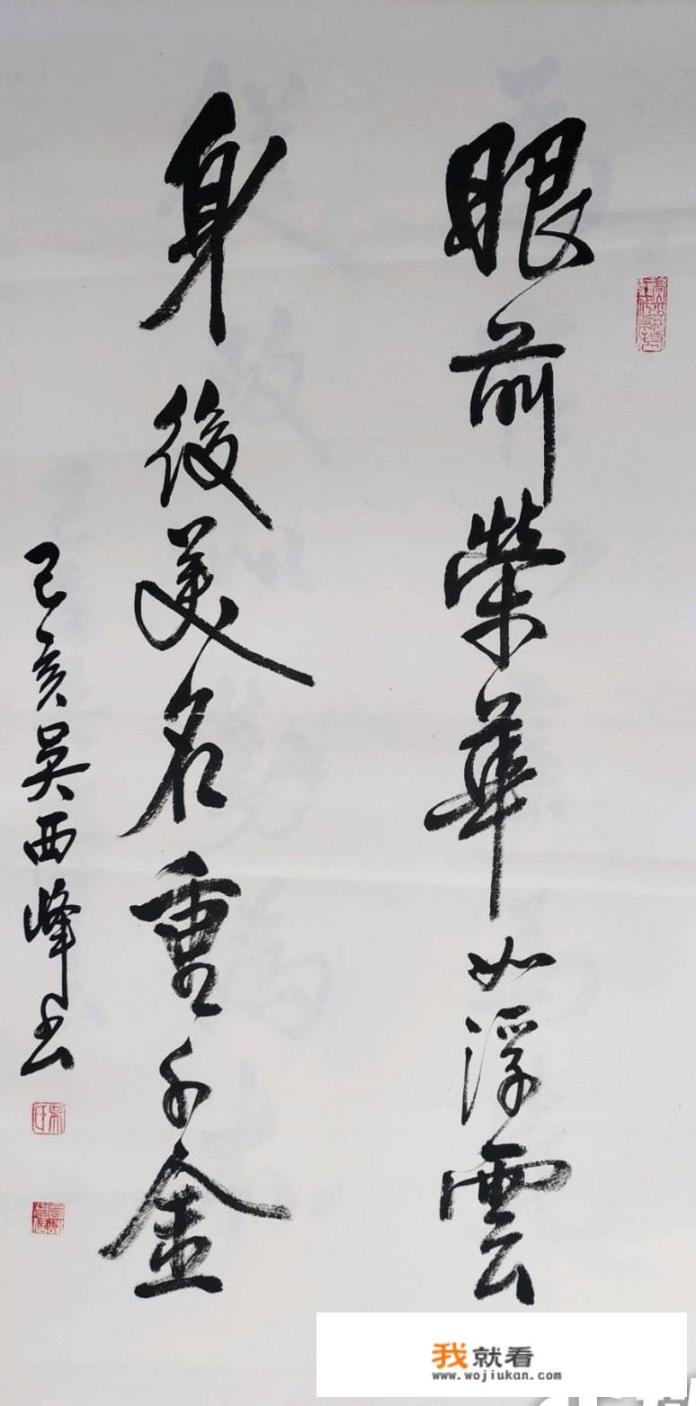 眼前榮華如浮雲
身後美名重千金
己亥吴西峰书
我就看
www.wojiukan.com